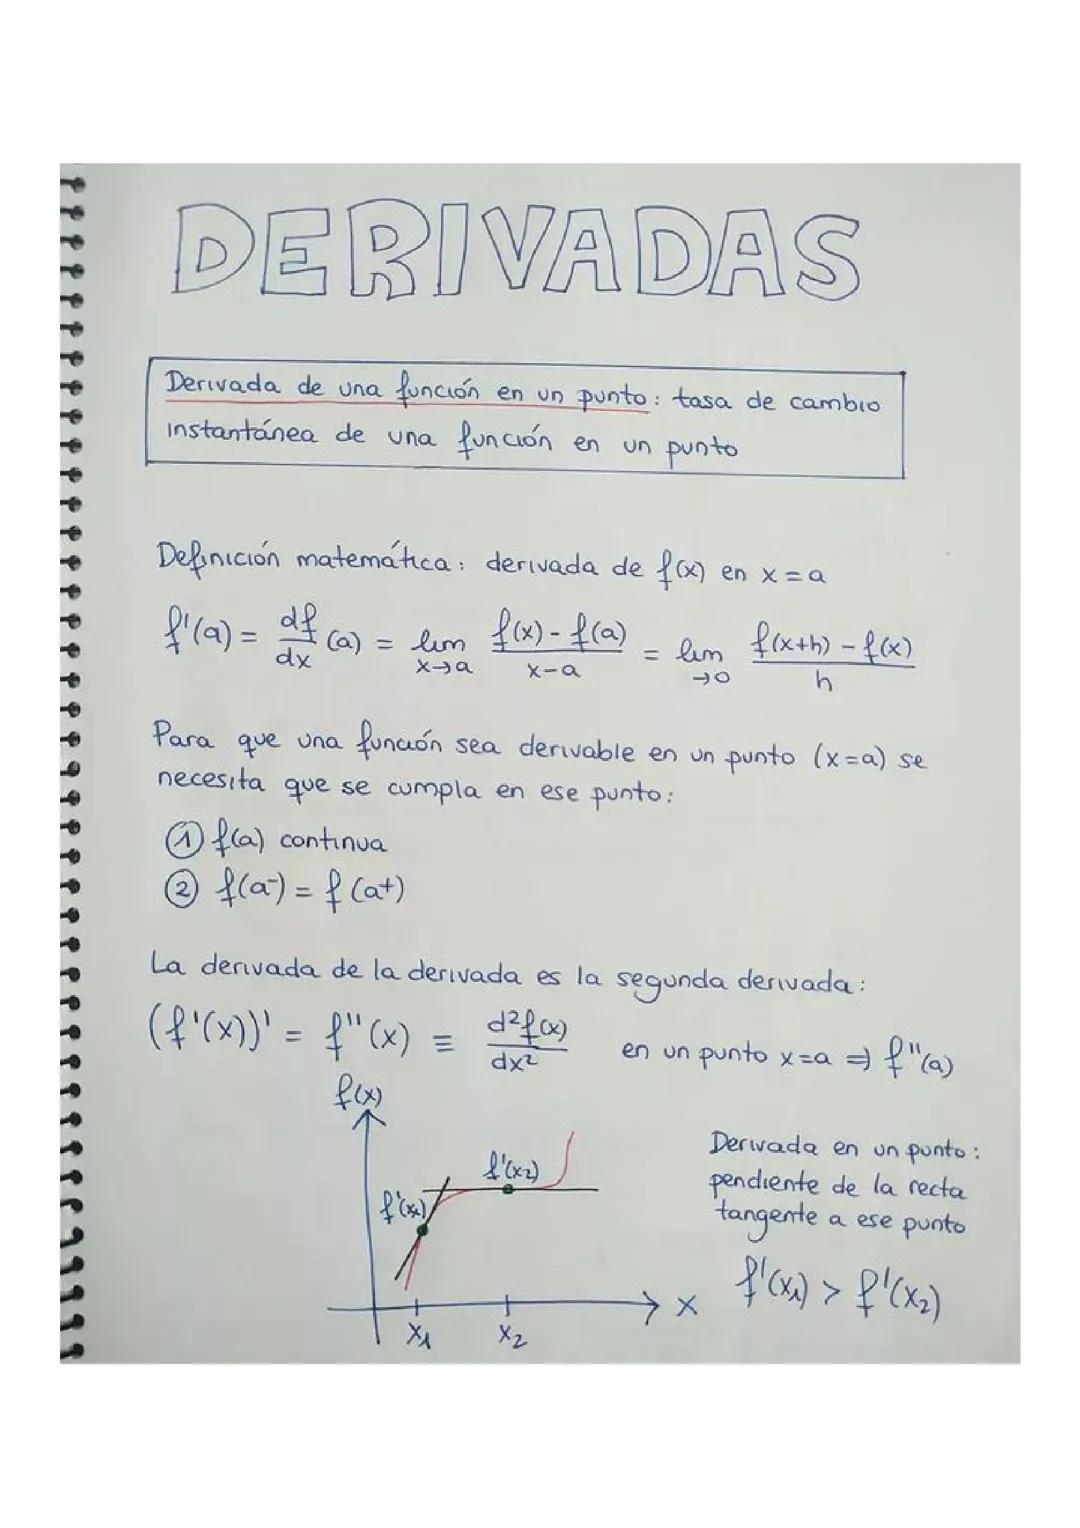 DERIVADAS
Derivada de una función en un punto: tasa de cambio
instantánea de una función en un punto
Definición matemática: derivada de f(x) en x = a
f'(a) = df/dx (a) = lim x→a f(x) - f(a) / x-a = lim →0 f(x+h) - f(x) / h
Para que una función sea derivable en un punto (x=a) se
necesita que se cumpla en ese punto:
① f(a) continua
② f(a⁻) = f(a⁺)
La derivada de la derivada es la segunda derivada:
(f'(x))' = f''(x) ≡ d²f(x)/dx² en un punto x=a ⇒ f''(a)
f(x)
f'(x₂)
f'(x₁)
x
x₁ x₂
Derivada en un punto:
pendiente de la recta
tangente a ese punto
f'(x₁) > f'(x₂)